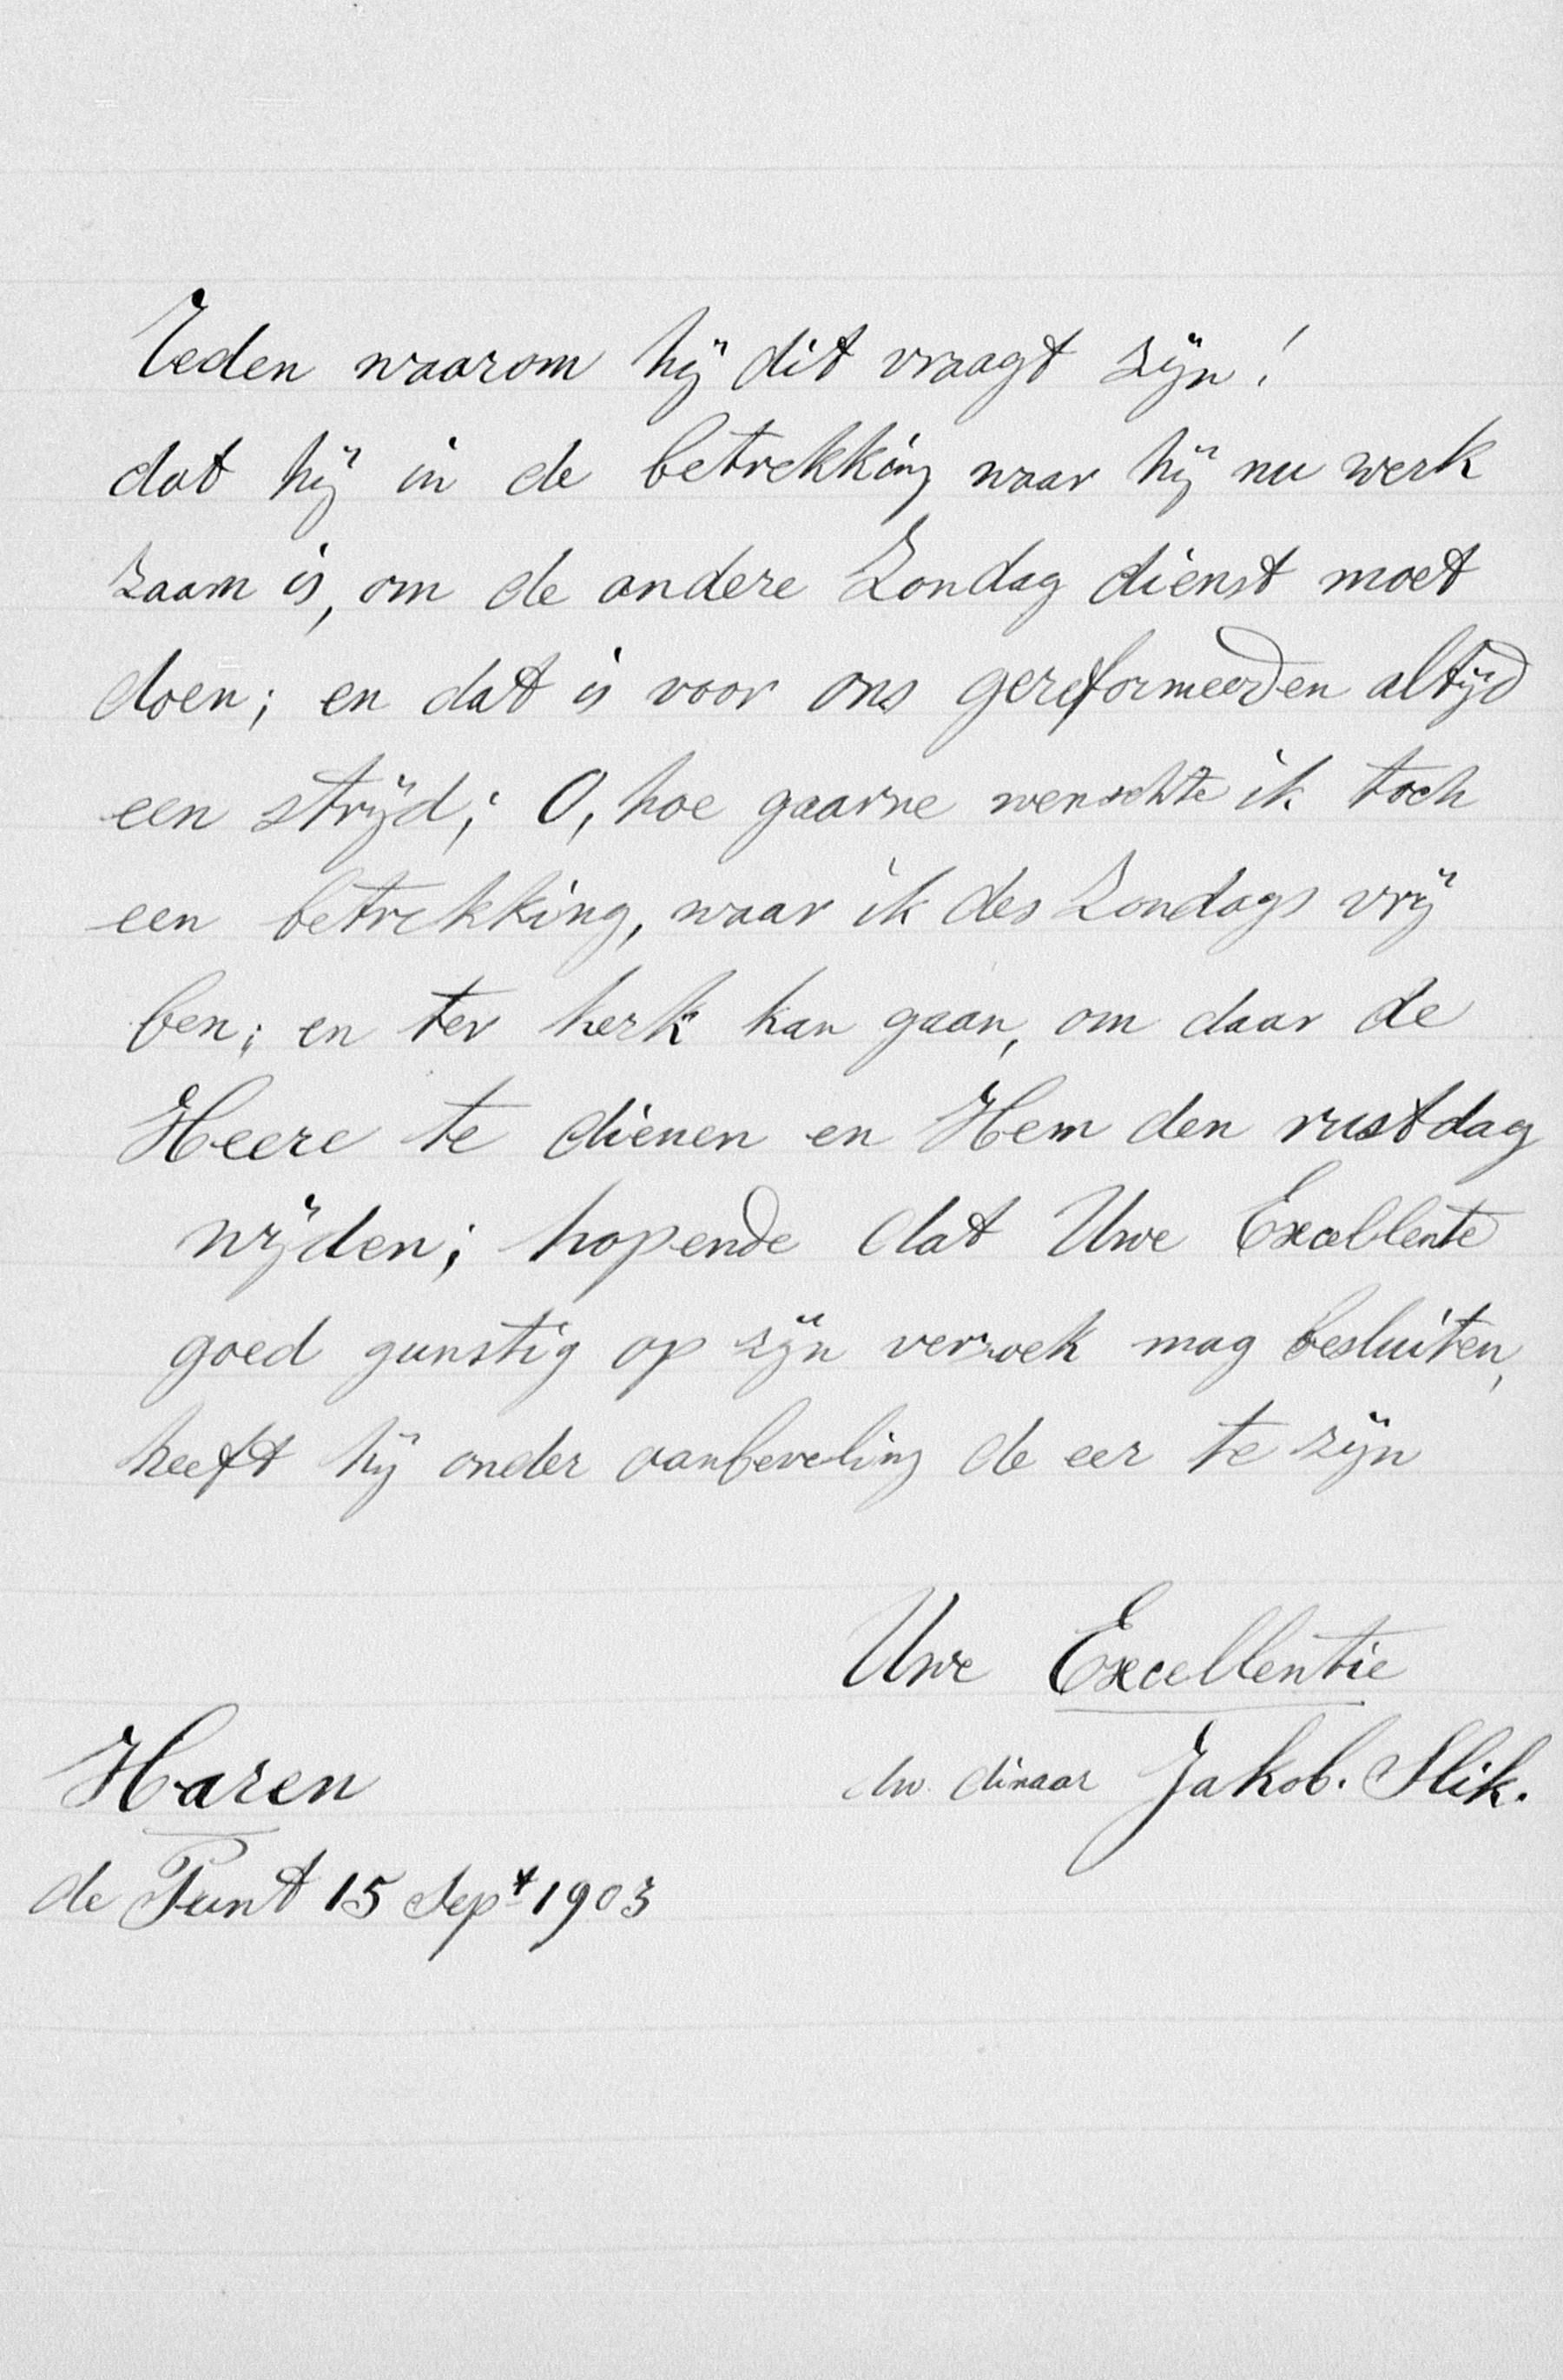 Reden waarom hij dit vraagt zijn!
dat hij in de betrekking waar hij nu werk
zaam is, om de andere Zondag dienst moet
doen; en dat is voor ons gereformeerden altijd
een strijd; O, hoe gaarne wenschte ik toch
een betrekking, waar ik des Zondags vrij
ben; en ter kerk kan gaan, om daar de
Heere te dienen en Hem den rustdag
wijden; hopende dat Uwe Excellente
goed gunstig op zijn verzoek mag besluiten,
heeft hij onder aanbeveling de eer te zijn
Uwe Excellentie
dw. dinaar Jakob. Slik.
Haren
de Punt 15 Sept 1903